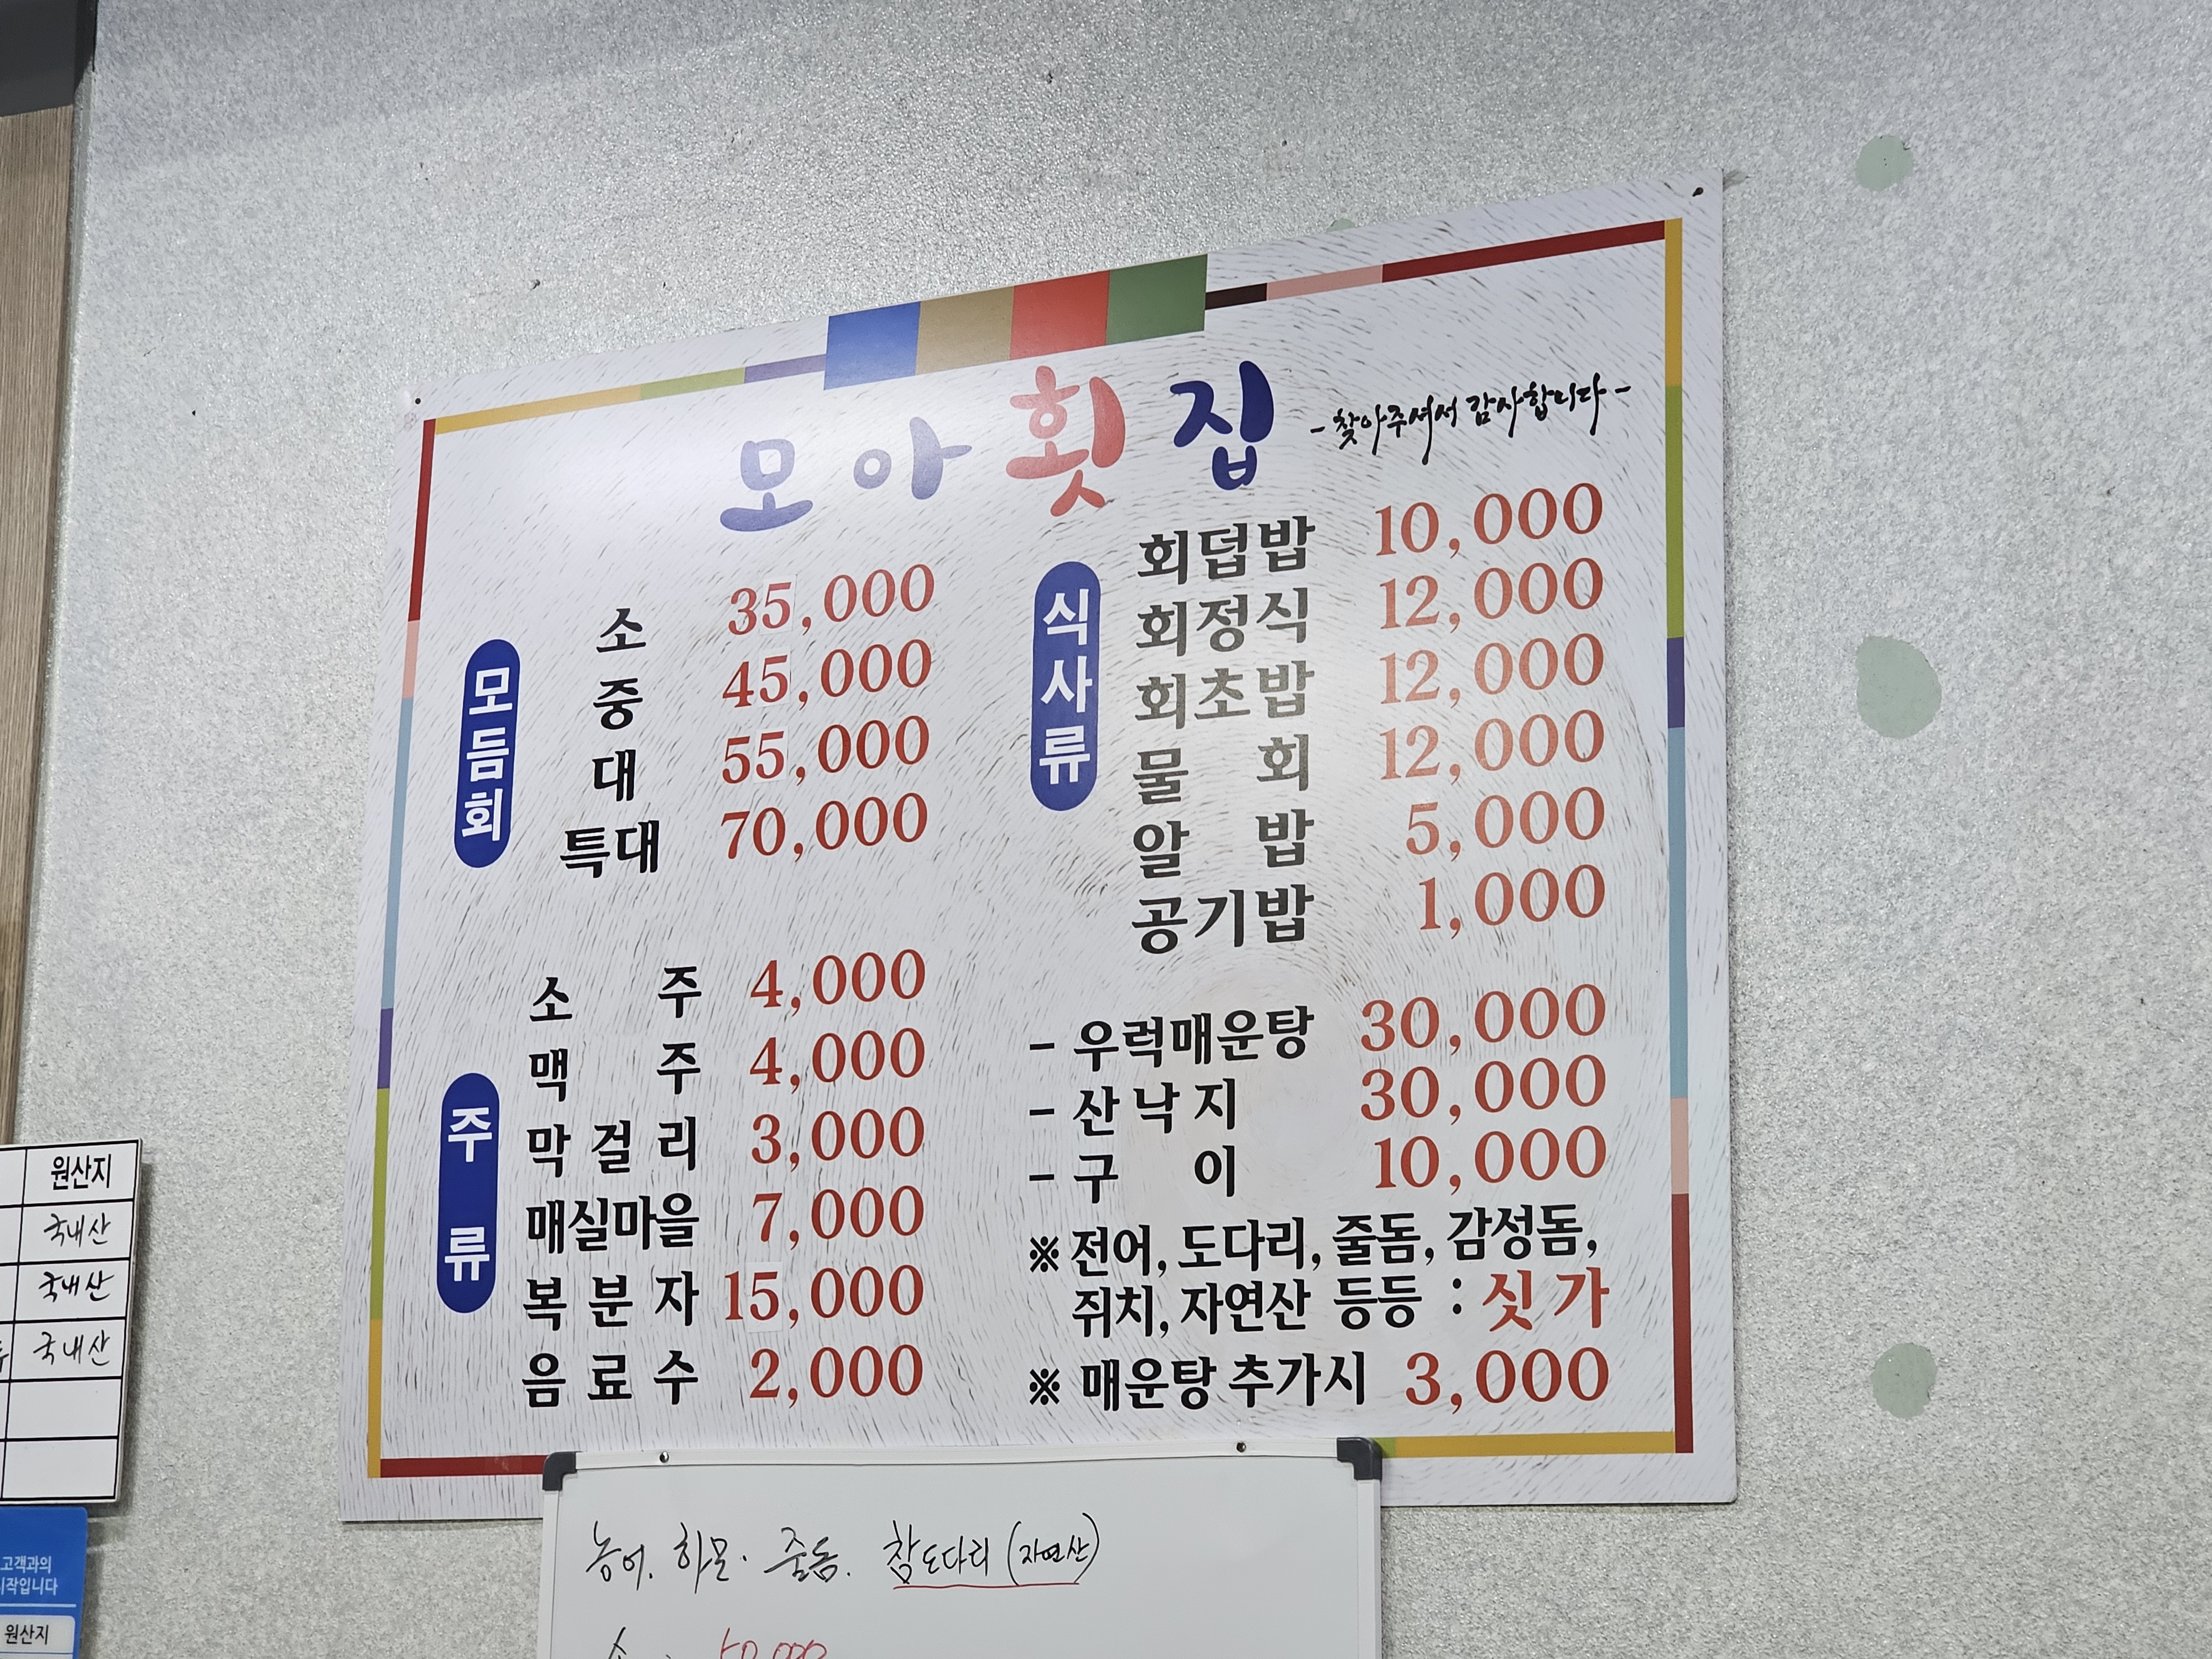 모아횟집
- 찾아주셔서 감사합니다 -
모듬회
소 35,000
중 45,000
대 55,000
특대 70,000
주류
소주 4,000
맥주 4,000
막걸리 3,000
매실마을 7,000
복분자 15,000
음료수 2,000
식사류
회덥밥 10,000
회정식 12,000
회초밥 12,000
물회 12,000
알밥 5,000
공기밥 1,000
- 우럭매운탕 30,000
- 산낙지 30,000
- 구이 10,000
※ 전어, 도다리, 줄돔, 감성돔,
쥐치, 자연산 등등 : 싯가
※ 매운탕 추가시 3,000
원산지
국내산
국내산
국내산
고객과의
시작입니다
원산지
농어. 하모. 줄돔. 참도다리 (자연산)